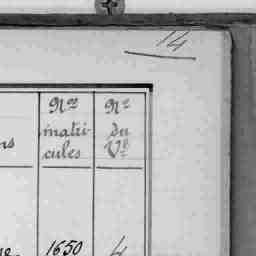 14
Nos
matri-
cules
No
du
Vt
ns
1650
4